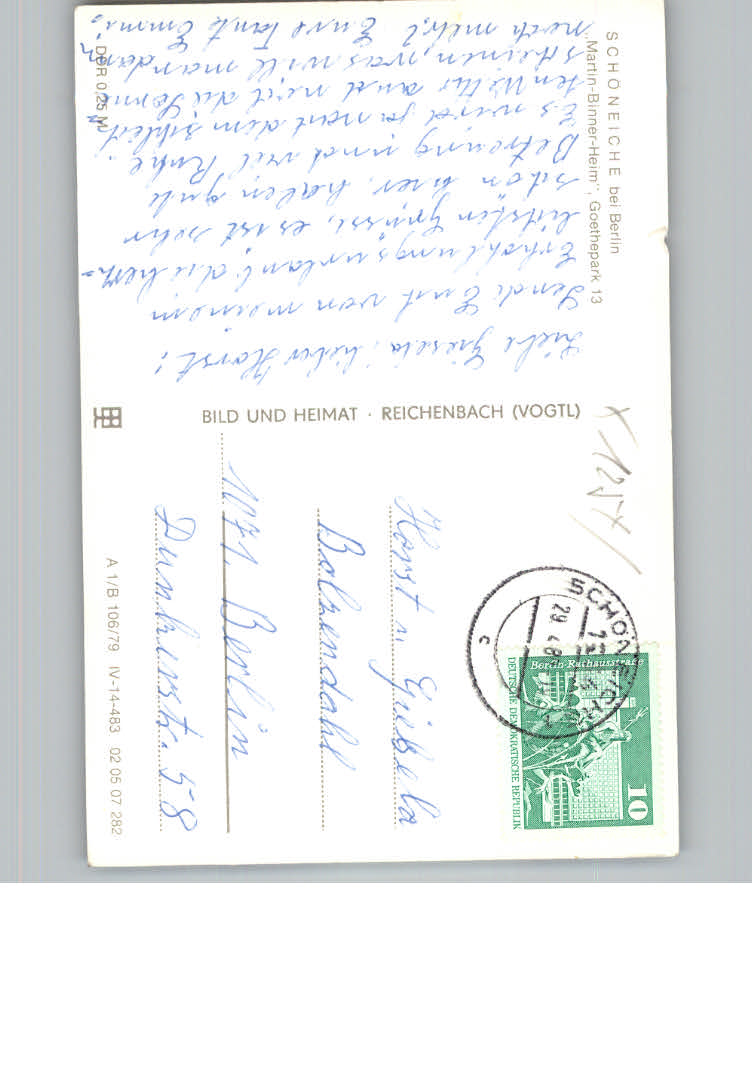 SCHÖNEICHE bei Berlin
„Martin-Binner-Heim", Goethepark 13
Liebe Gisela, lieber Horst!
Sende Euch von meinem
Erholungsurlaub die herz-
lichsten Grüsse, es ist sehr
schön hier, haben gute
Betreuung und viel Ruhe.
Es wird ja nach dem schlech
ten Wetter auch mal die Sonne
scheinen, was will man dann
noch mehr? Eure Tante Emmi
DDR 0,25 M
BILD UND HEIMAT · REICHENBACH (VOGTL)
X 1257/
SCHÖNEICHE
29. 4.
Berlin-Rathausstraße
DEUTSCHE DEMOKRATISCHE REPUBLIK
10
Horst u. Gisela
Bolzendahl
1071 Berlin
Dunkerstr. 58
A 1/B 106/79 IV-14-483 02 05 07 282